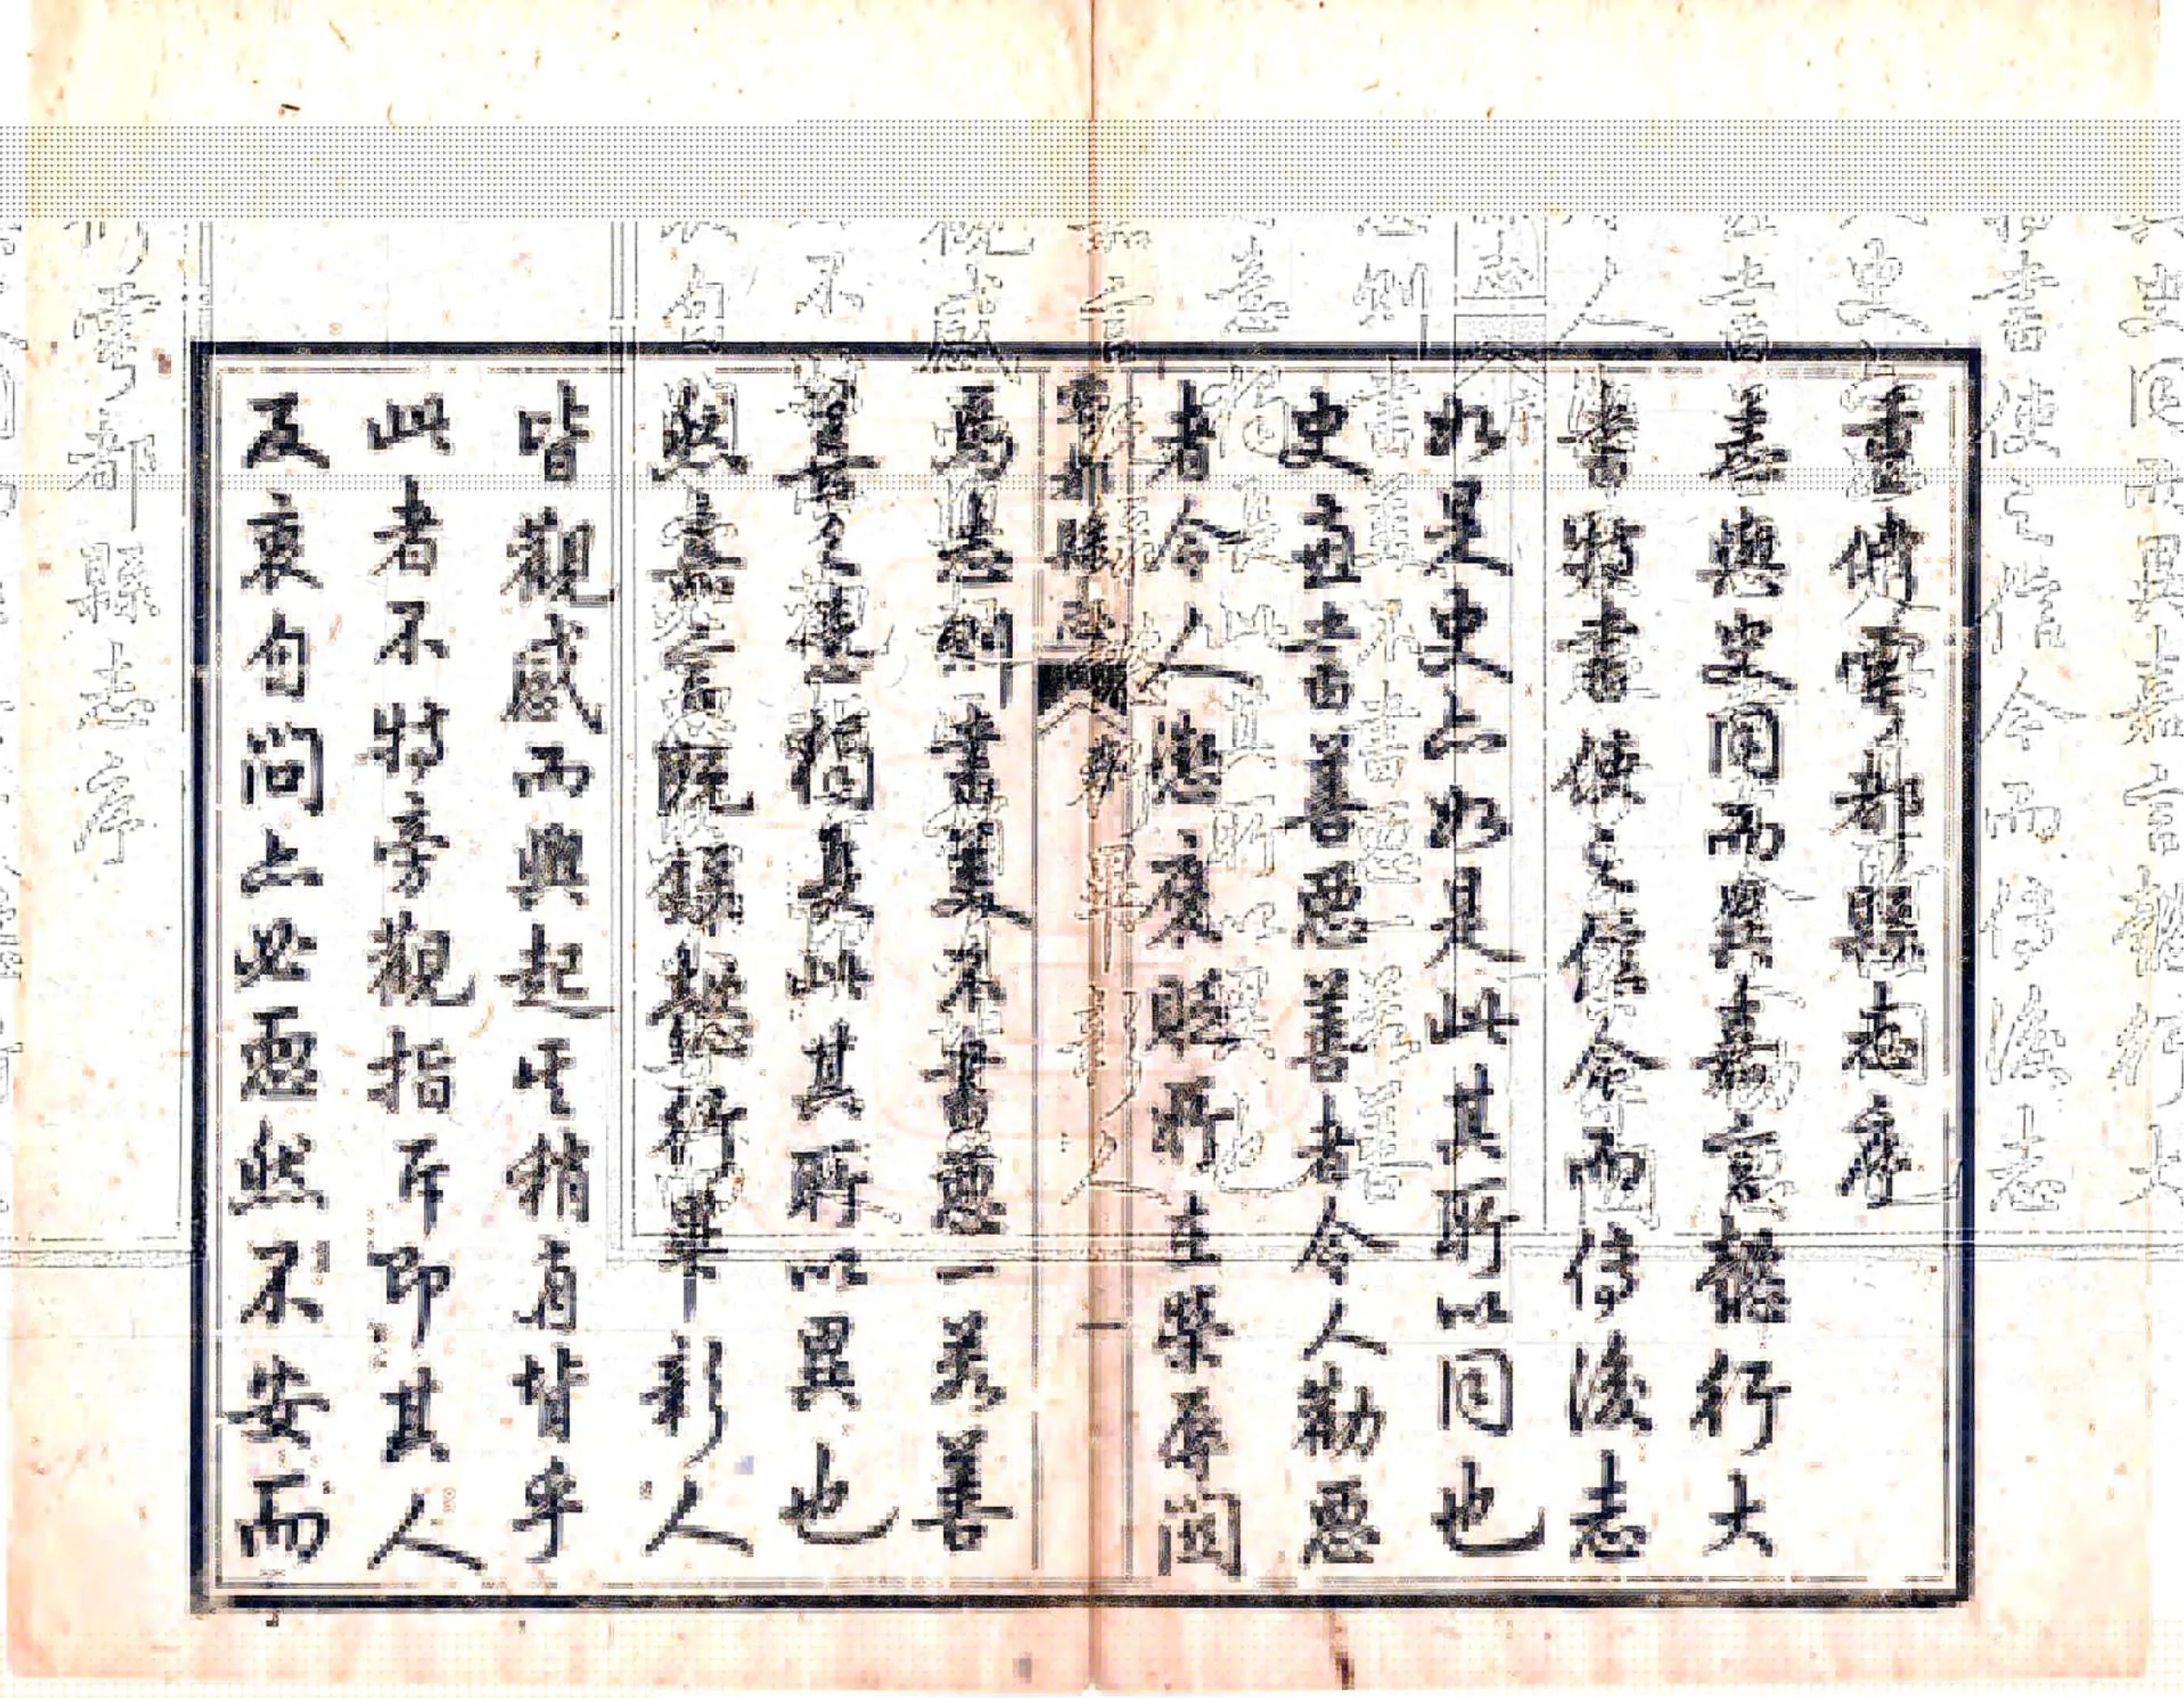 重脩雩都縣志序
志與史同而異嘉言懿行大
書特書使之信今而傳後志
如是史亦如是此其所以同也
史直書善惡善者令人勸惡
者令人懲褒貶所主榮辱関
雩都縣志 序 一
焉志則書美不書惡一若善
善之獨長此其所以異也
然嘉言既錄懿行畢彰人
皆觀感而興起其稍有背乎
此者不特旁觀指斥即其人
反衷自問亦必恧然不安而